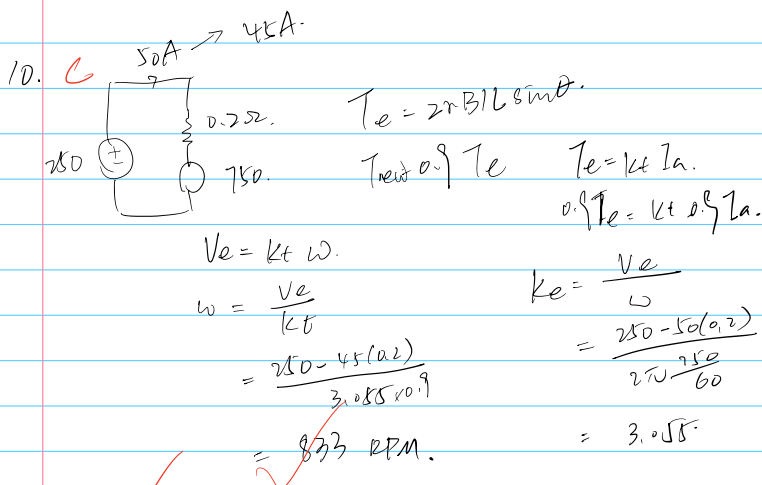 50A → 45A.
10. C
0.2Ω.
250
±
750.
Te = 2rBIL sinθ.
Tnew 0.9 Te
Te = kt Ia.
0.9 Te = kt 0.9 Ia.
Ve = kt ω.
ω = Ve / kt
= 250 - 45(0.2) / 3.055x0.9
= 833 RPM.
Ke = Ve / ω
= 250 - 50(0.2) / 2π 750/60
= 3.055.